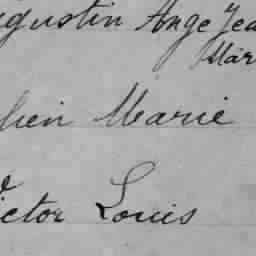 ugustin Ange Jea
Mar
lien Marie
ictor Louis